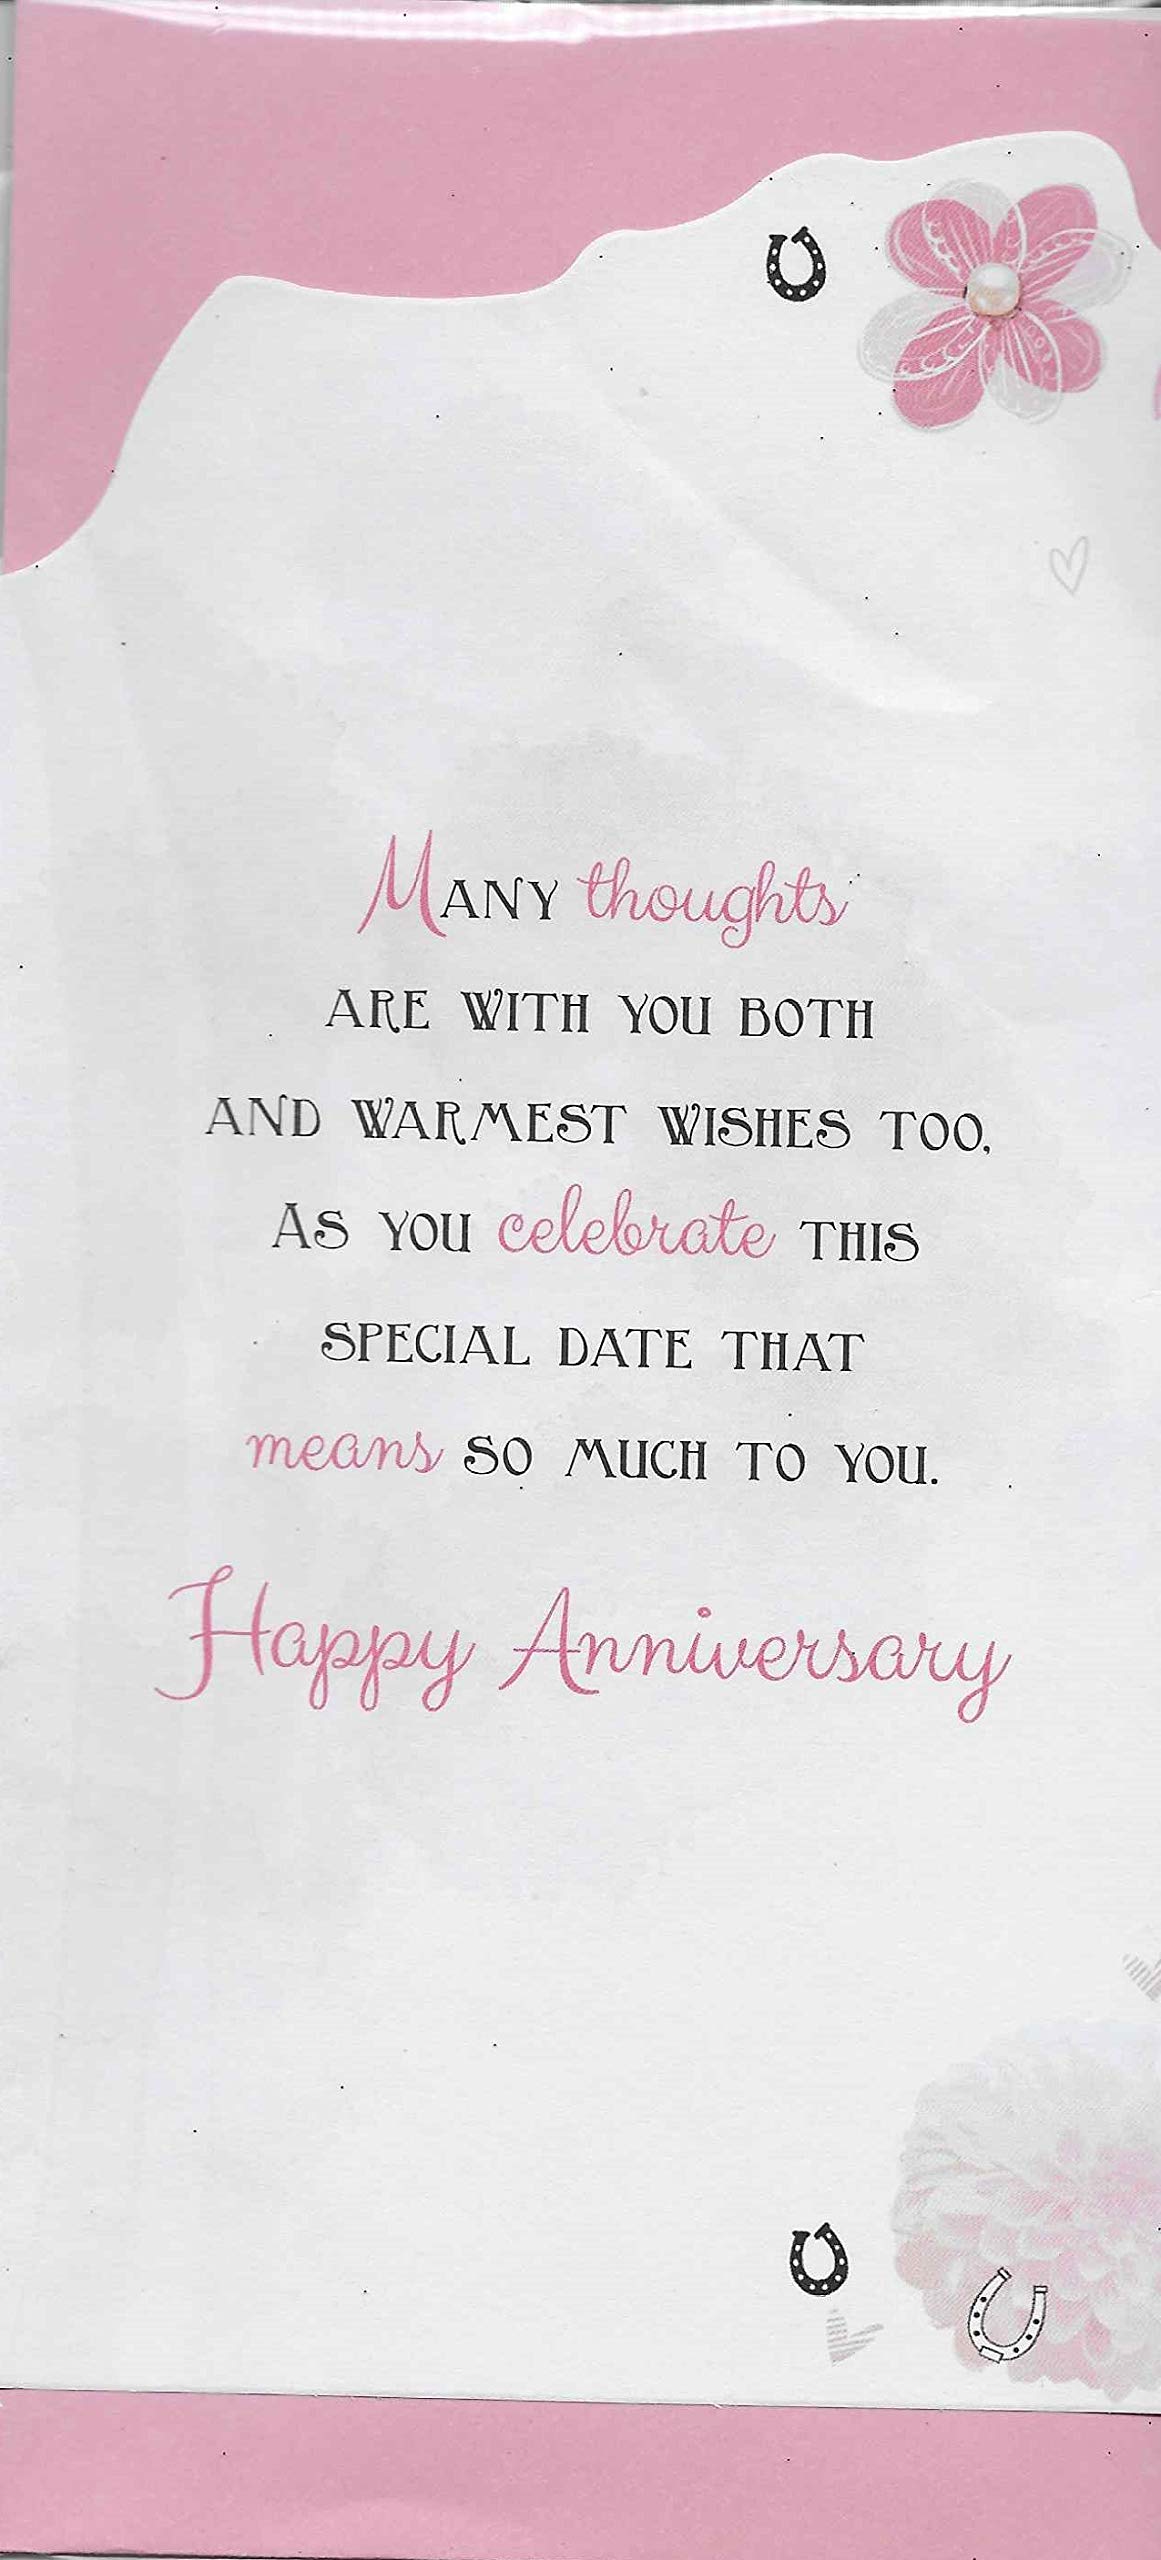 Many thoughts
ARE WITH YOU BOTH
AND WARMEST WISHES TOO,
AS YOU celebrate THIS
SPECIAL DATE THAT
means SO MUCH TO YOU.
Happy Anniversary